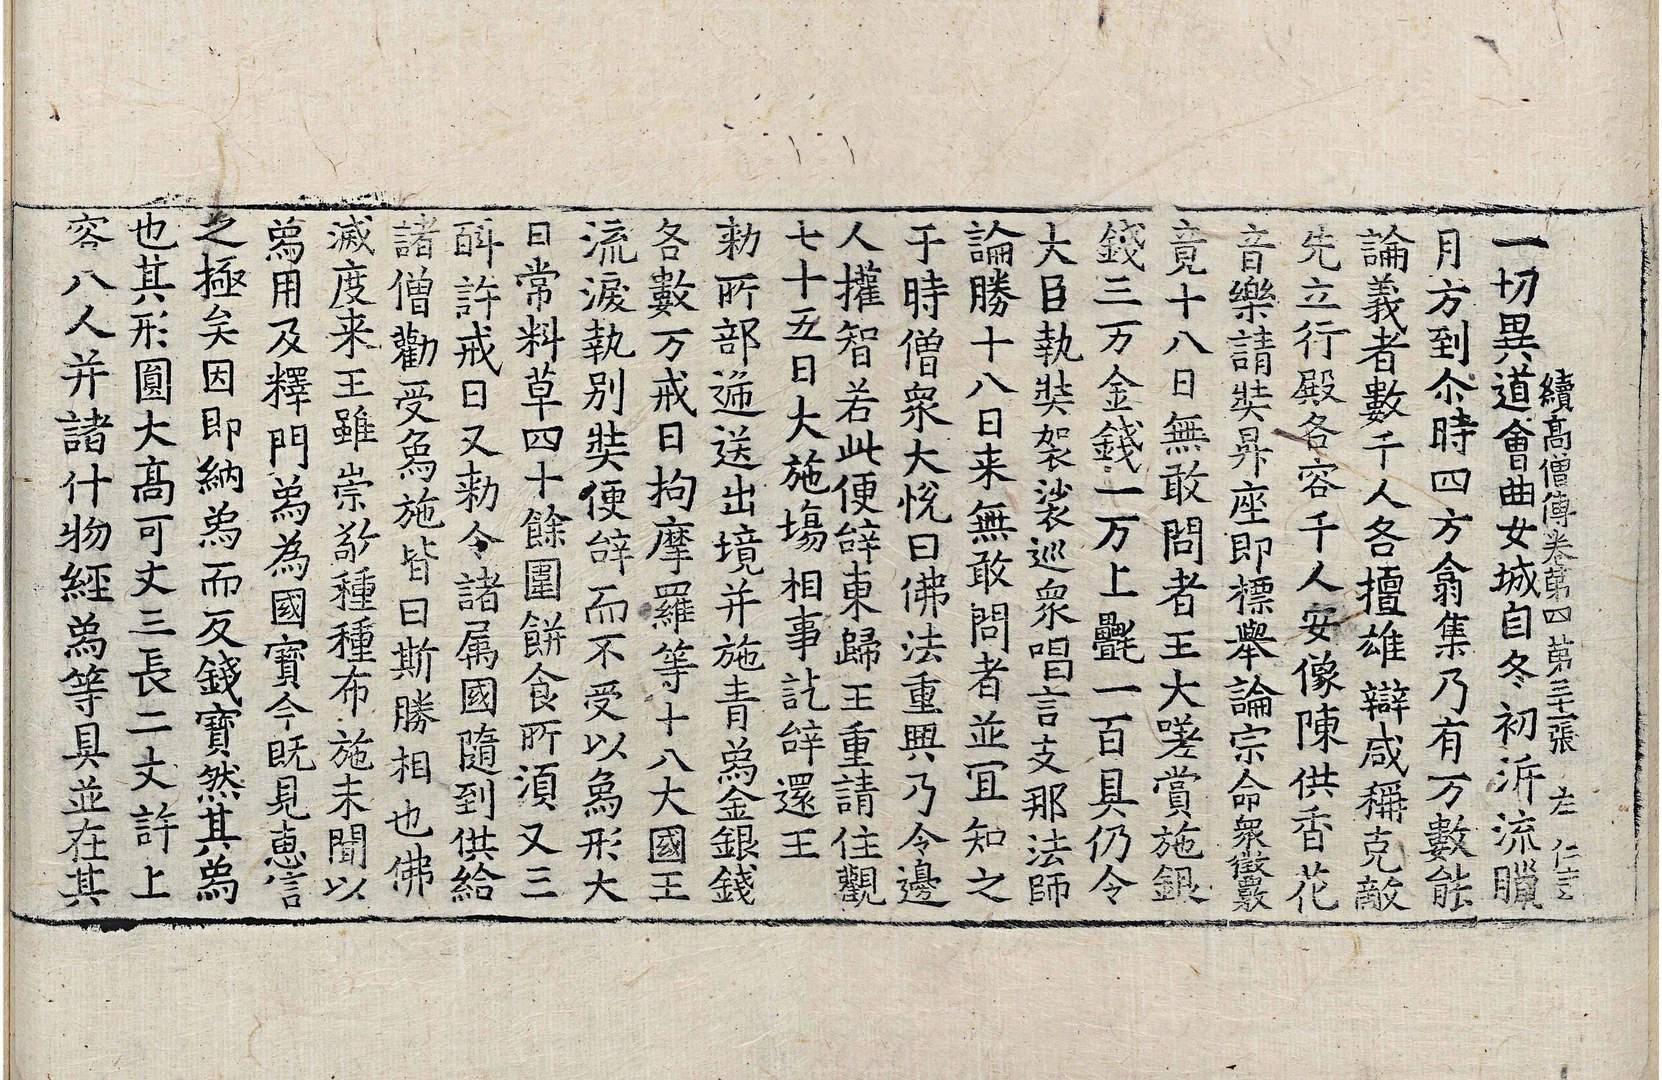 續高僧傳卷第四 第三十一張 左
一切異道會曲女城自冬初泝流臘
月方到尒時四方翕集乃有万數能
論義者數千人各擅雄辯咸稱克敵
先立行殿各容千人安像陳供香花
音樂請奘昇座即標舉論宗命衆徵覈
竟十八日無敢問者王大嗟賞施銀
錢三万金錢一万上㲲一百具仍令
大臣執奘袈裟巡衆唱言支那法師
論勝十八日来無敢問者並冝知之
于時僧衆大悅曰佛法重興乃令邊
人權智若此便辝東歸王重請住觀
七十五日大施塲相事訖辝還王
勑所部遞送出境并施青為金銀錢
各數万戒日拘摩羅等十八大國王
流淚執別奘便辝而不受以為形大
日常料草四十餘圍餅食所湏又三
斛許戒日又勑令諸属國隨到供給
諸僧勸受為施皆曰斯勝相也佛
滅度来王雖崇敬種種布施未聞以
為用及釋門為為國寳今旣見惠言
之極矣因即納為而反錢寳然其為
也其形圎大高可丈三長二丈許上
容八人并諸什物經為等具並在其